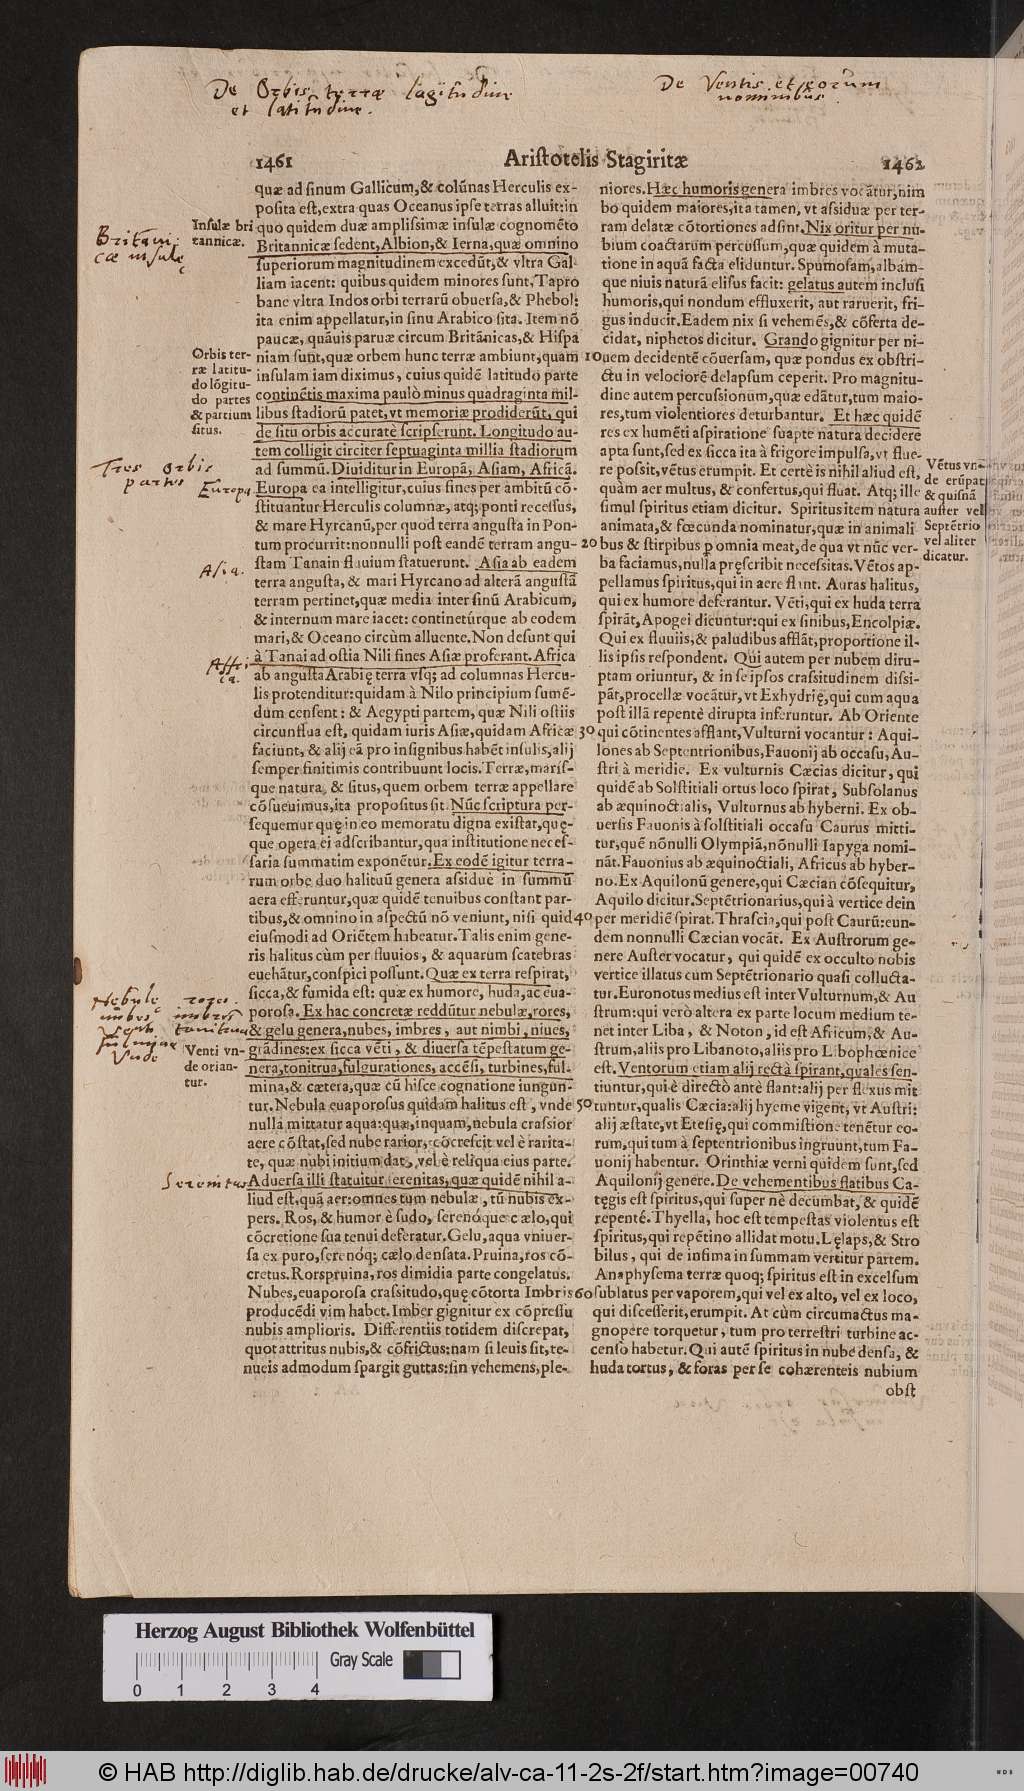 De Orbis terræ lōgitudine
et latitudine.
De Ventis et eorum
nominibus.
1461
Aristotelis Stagiritæ
1462
quæ ad sinum Gallicum,& colūnas Herculis ex-
posita est,extra quas Oceanus ipse terras alluit:in
quo quidem duæ amplissimæ insulæ cognomēto
Britannicæ sedent,Albion,& Ierna,quæ omnino
superiorum magnitudinem excedūt,& vltra Gal-
liam iacent: quibus quidem minores sunt,Tapro
bane vltra Indos orbi terrarū obuersa,& Phebol:
ita enim appellatur,in sinu Arabico sita. Item nō
paucæ, quāuis paruæ circum Britānicas,& Hispa
niam sunt,quæ orbem hunc terræ ambiunt,quam
insulam iam diximus, cuius quidē latitudo parte
continētis maxima paulò minus quadraginta mil-
libus stadiorū patet,vt memoriæ prodiderūt, qui
de situ orbis accuratè scripserunt. Longitudo au-
tem colligit circiter septuaginta millia stadiorum
ad summū. Diuiditur in Europā, Asiam, Africā.
Europa ea intelligitur,cuius fines per ambitū cō-
stituantur Herculis columnæ, atq; ponti recessus,
& mare Hyrcanū,per quod terra angusta in Pon-
tum procurrit:nonnulli post eandē terram angu-
stam Tanain fluuium statuerunt. Asia ab eadem
terra angusta, & mari Hyrcano ad alterā angustā
terram pertinet,quæ media inter sinū Arabicum,
& internum mare iacet: continetúrque ab eodem
mari,& Oceano circùm alluente.Non desunt qui
à Tanai ad ostia Nili fines Asiæ proferant.Africa
ab angusta Arabię terra vsq; ad columnas Hercu-
lis protenditur:quidam à Nilo principium sumē-
dum censent: & Aegypti partem, quæ Nili ostiis
circunflua est, quidam iuris Asiæ,quidam Africæ
faciunt, & alij eā pro insignibus habēt insulis,alij
semper finitimis contribuunt locis.Terræ,marís-
que natura, & situs, quem orbem terræ appellare
cōsueuimus,ita propositus sit. Nūc scriptura per-
sequemur quę in eo memoratu digna existat,quę-
que opera ei adscribantur,qua institutione neces-
saria summatim exponētur. Ex eodē igitur terra-
rum orbe duo halituū genera assiduè in summū
aera efferuntur,quæ quidē tenuibus constant par-
tibus,& omnino in aspectū nō veniunt, nisi quid
eiusmodi ad Oriētem habeatur.Talis enim gene-
ris halitus cùm per fluuios, & aquarum scatebras
euehātur,conspici possunt. Quæ ex terra respirat,
sicca,& fumida est: quæ ex humore, huda,ac eua-
porosa. Ex hac concretæ reddūtur nebulæ,rores,
& gelu genera,nubes, imbres, aut nimbi, niues,
grādines:ex sicca vēti, & diuersa tēpestatum ge-
nera,tonitrua,fulgurationes, accēsi, turbines,ful-
mina,& cætera,quæ cū hisce cognatione iungun-
tur. Nebula euaporosus quidam halitus est, vnde
nulla mittatur aqua:quæ,inquam,nebula crassior
aere cōstat,sed nube rarior,cōcrescit vel è rarita-
te, quæ nubi initium dat, vel è reliqua eius parte.
Aduersa illi statuitur serenitas,quæ quidē nihil a-
liud est,quā aer:omnes tum nebulæ, tū nubis ex-
pers. Ros, & humor è sudo, serenóque cælo,qui
cōcretione sua tenui deferatur. Gelu,aqua vniuer-
sa ex puro,serenóq; cælo densata.Pruina,ros cō-
cretus.Rorspruina,ros dimidia parte congelatus.
Nubes,euaporosa crassitudo,quę cōtorta Imbris
producēdi vim habet.Imber gignitur ex cōpressu
nubis amplioris. Differentiis totidem discrepat,
quot attritus nubis,& cōfrictus:nam si leuis sit,te-
nueis admodum spargit guttas:sin vehemens,ple-
Insulæ bri
tannicæ.
Orbis ter-
ræ latitu-
do lōgitu-
do partes
& partium
situs.
Venti vn-
de orian-
tur.
Britani-
cæ insulę
Tres orbis
partes
Europa
Asia.
Affri
ca.
Nebulę rores.
nubes imbres
tonitrua
fulmina
unde
Serenitas
10
20
30
40
50
60
niores.Hæc humoris genera imbres vocātur,nim
bo quidem maiores,ita tamen, vt assiduæ per ter-
ram delatæ cōtortiones adsint.Nix oritur per nu-
bium coactarum percussum,quæ quidem à muta-
tione in aquā facta eliduntur. Spumosam,albám-
que niuis naturā elisus facit: gelatus autem inclusi
humoris,qui nondum effluxerit, aut raruerit, fri-
gus inducit.Eadem nix si vehemēs,& cōferta de-
cidat, niphetos dicitur. Grando gignitur per ni-
uem decidentē cōuersam, quæ pondus ex obstri-
ctu in velociorē delapsum ceperit. Pro magnitu-
dine autem percussionum,quæ edātur,tum maio-
res,tum violentiores deturbantur. Et hæc quidē
res ex humēti aspiratione suapte natura decidere
apta sunt,sed ex sicca ita à frigore impulsa,vt flue-
re possit,vētus erumpit. Et certè is nihil aliud est,
quàm aer multus, & confertus,qui fluat. Atq; ille
simul spiritus etiam dicitur. Spiritus item natura
animata,& fœcunda nominatur,quæ in animali
bus & stirpibus p omnia meat,de qua vt nūc ver-
ba faciamus,nulla pręscribit necessitas. Vētos ap-
pellamus spiritus,qui in aere flant. Auras halitus,
qui ex humore deferantur. Vēti,qui ex huda terra
spirāt,Apogei dicuntur:qui ex sinibus,Encolpiæ.
Qui ex fluuiis,& paludibus afflāt,proportione il-
lis ipsis respondent. Qui autem per nubem diru-
ptam oriuntur, & in se ipsos crassitudinem dissi-
pāt,procellæ vocātur,vt Exhydrię,qui cum aqua
post illā repentè dirupta inferuntur. Ab Oriente
qui cōtinentes afflant,Vulturni vocantur: Aqui-
lones ab Septentrionibus,Fauonij ab occasu,Au-
stri à meridie. Ex vulturnis Cæcias dicitur, qui
quidē ab Solstitiali ortus loco spirat, Subsolanus
ab æquinoctialis, Vulturnus ab hyberni. Ex ob-
uersis Fauonis à solstitiali occasu Caurus mitti-
tur,quē nōnulli Olympiā,nōnulli Iapyga nomi-
nāt.Fauonius ab æquinoctiali, Africus ab hyber-
no.Ex Aquilonū genere,qui Cæcian cōsequitur,
Aquilo dicitur.Septētrionarius,qui à vertice dein
per meridiē spirat.Thrascia,qui post Caurū:eun-
dem nonnulli Cæcian vocāt. Ex Austrorum ge-
nere Auster vocatur, qui quidē ex occulto nobis
vertice illatus cum Septētrionario quasi collucta-
tur.Euronotus medius est inter Vulturnum,& Au
strum:qui verò altera ex parte locum medium te-
net inter Liba, & Noton, id est Africum,& Au-
strum,aliis pro Libanoto,aliis pro Libophœnice
est. Ventorum etiam alij rectà spirant,quales sen-
tiuntur,qui è directò antè flant:alij per flexus mit
tuntur,qualis Cæcia:alij hyeme vigent, vt Austri:
alij æstate,vt Etesię,qui commistione tenētur eo-
rum,qui tum à septentrionibus ingruunt,tum Fa-
uonij habentur. Orinthiæ verni quidem sunt,sed
Aquilonij genere. De vehementibus flatibus Ca-
tęgis est spiritus,qui super nè decumbat, & quidē
repentè.Thyella, hoc est tempestas violentus est
spiritus,qui repētino allidat motu.Lęlaps,& Stro
bilus, qui de infima in summam vertitur partem.
Anaphysema terræ quoq; spiritus est in excelsum
sublatus per vaporem,qui vel ex alto, vel ex loco,
qui discesserit,erumpit. At cùm circumactus ma-
gnopere torquetur, tum pro terrestri turbine ac-
censo habetur. Qui autē spiritus in nube densa, &
huda tortus, & foras per se cohærenteis nubium
obst
Vētus vn-
de erūpat
& quisnā
auster vel
Septētrio
vel aliter
dicatur.
Herzog August Bibliothek Wolfenbüttel
Gray Scale
0 1 2 3 4
© HAB http://diglib.hab.de/drucke/alv-ca-11-2s-2f/start.htm?image=00740